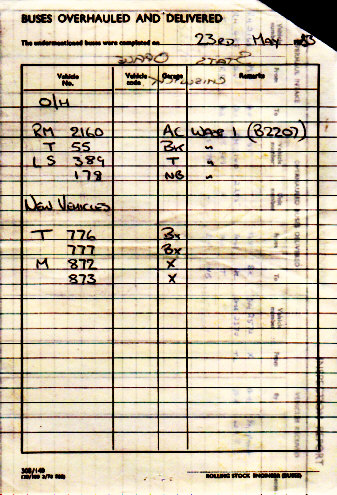 BUSES OVERHAULED AND DELIVERED
The undermentioned buses were completed on 23RD MAY 83
Vehicle No. Vehicle code Garage Remarks
O/H
RM 2160 AC WAS 1 (B2207)
T 55 BK "
LS 389 T "
178 NB "
NEW VEHICLES
T 776 BX
777 BX
M 872 X
873 X
308/140
ROLLING STOCK ENGINEER (BUSES)